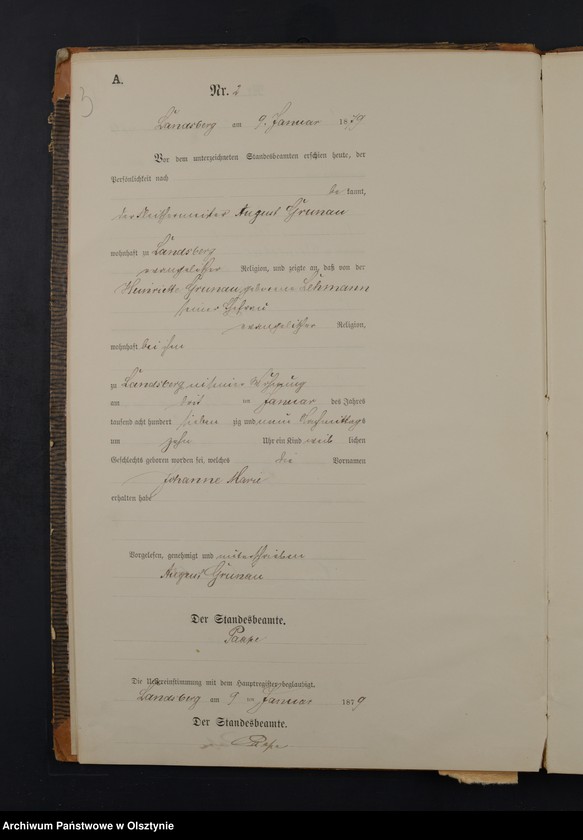 A.
3
Nr. 2
Landsberg am 9. Januar 1879
Vor dem unterzeichneten Standesbeamten erschien heute, der
Persönlichkeit nach
be kannt,
der August Grunau
wohnhaft zu Landsberg
evangelischer Religion, und zeigte an, daß von der
Henriette Grunau, geborenen Lehmann
seiner Ehefrau
evangelischer Religion,
wohnhaft bei ihm
zu Landsberg in seiner Wohnung
am drei ten Januar des Jahres
tausend acht hundert sieben zig und neun Nachmittags
um zehn Uhr ein Kind weib lichen
Geschlechts geboren worden sei, welches die Vornamen
Johanne Marie
erhalten habe
Vorgelesen, genehmigt und unterschrieben
August Grunau
Der Standesbeamte.
Die Uebereinstimmung mit dem Hauptregister beglaubigt.
Landsberg am 9 ten Januar 1879
Der Standesbeamte.
Archiwum Państwowe w Olsztynie